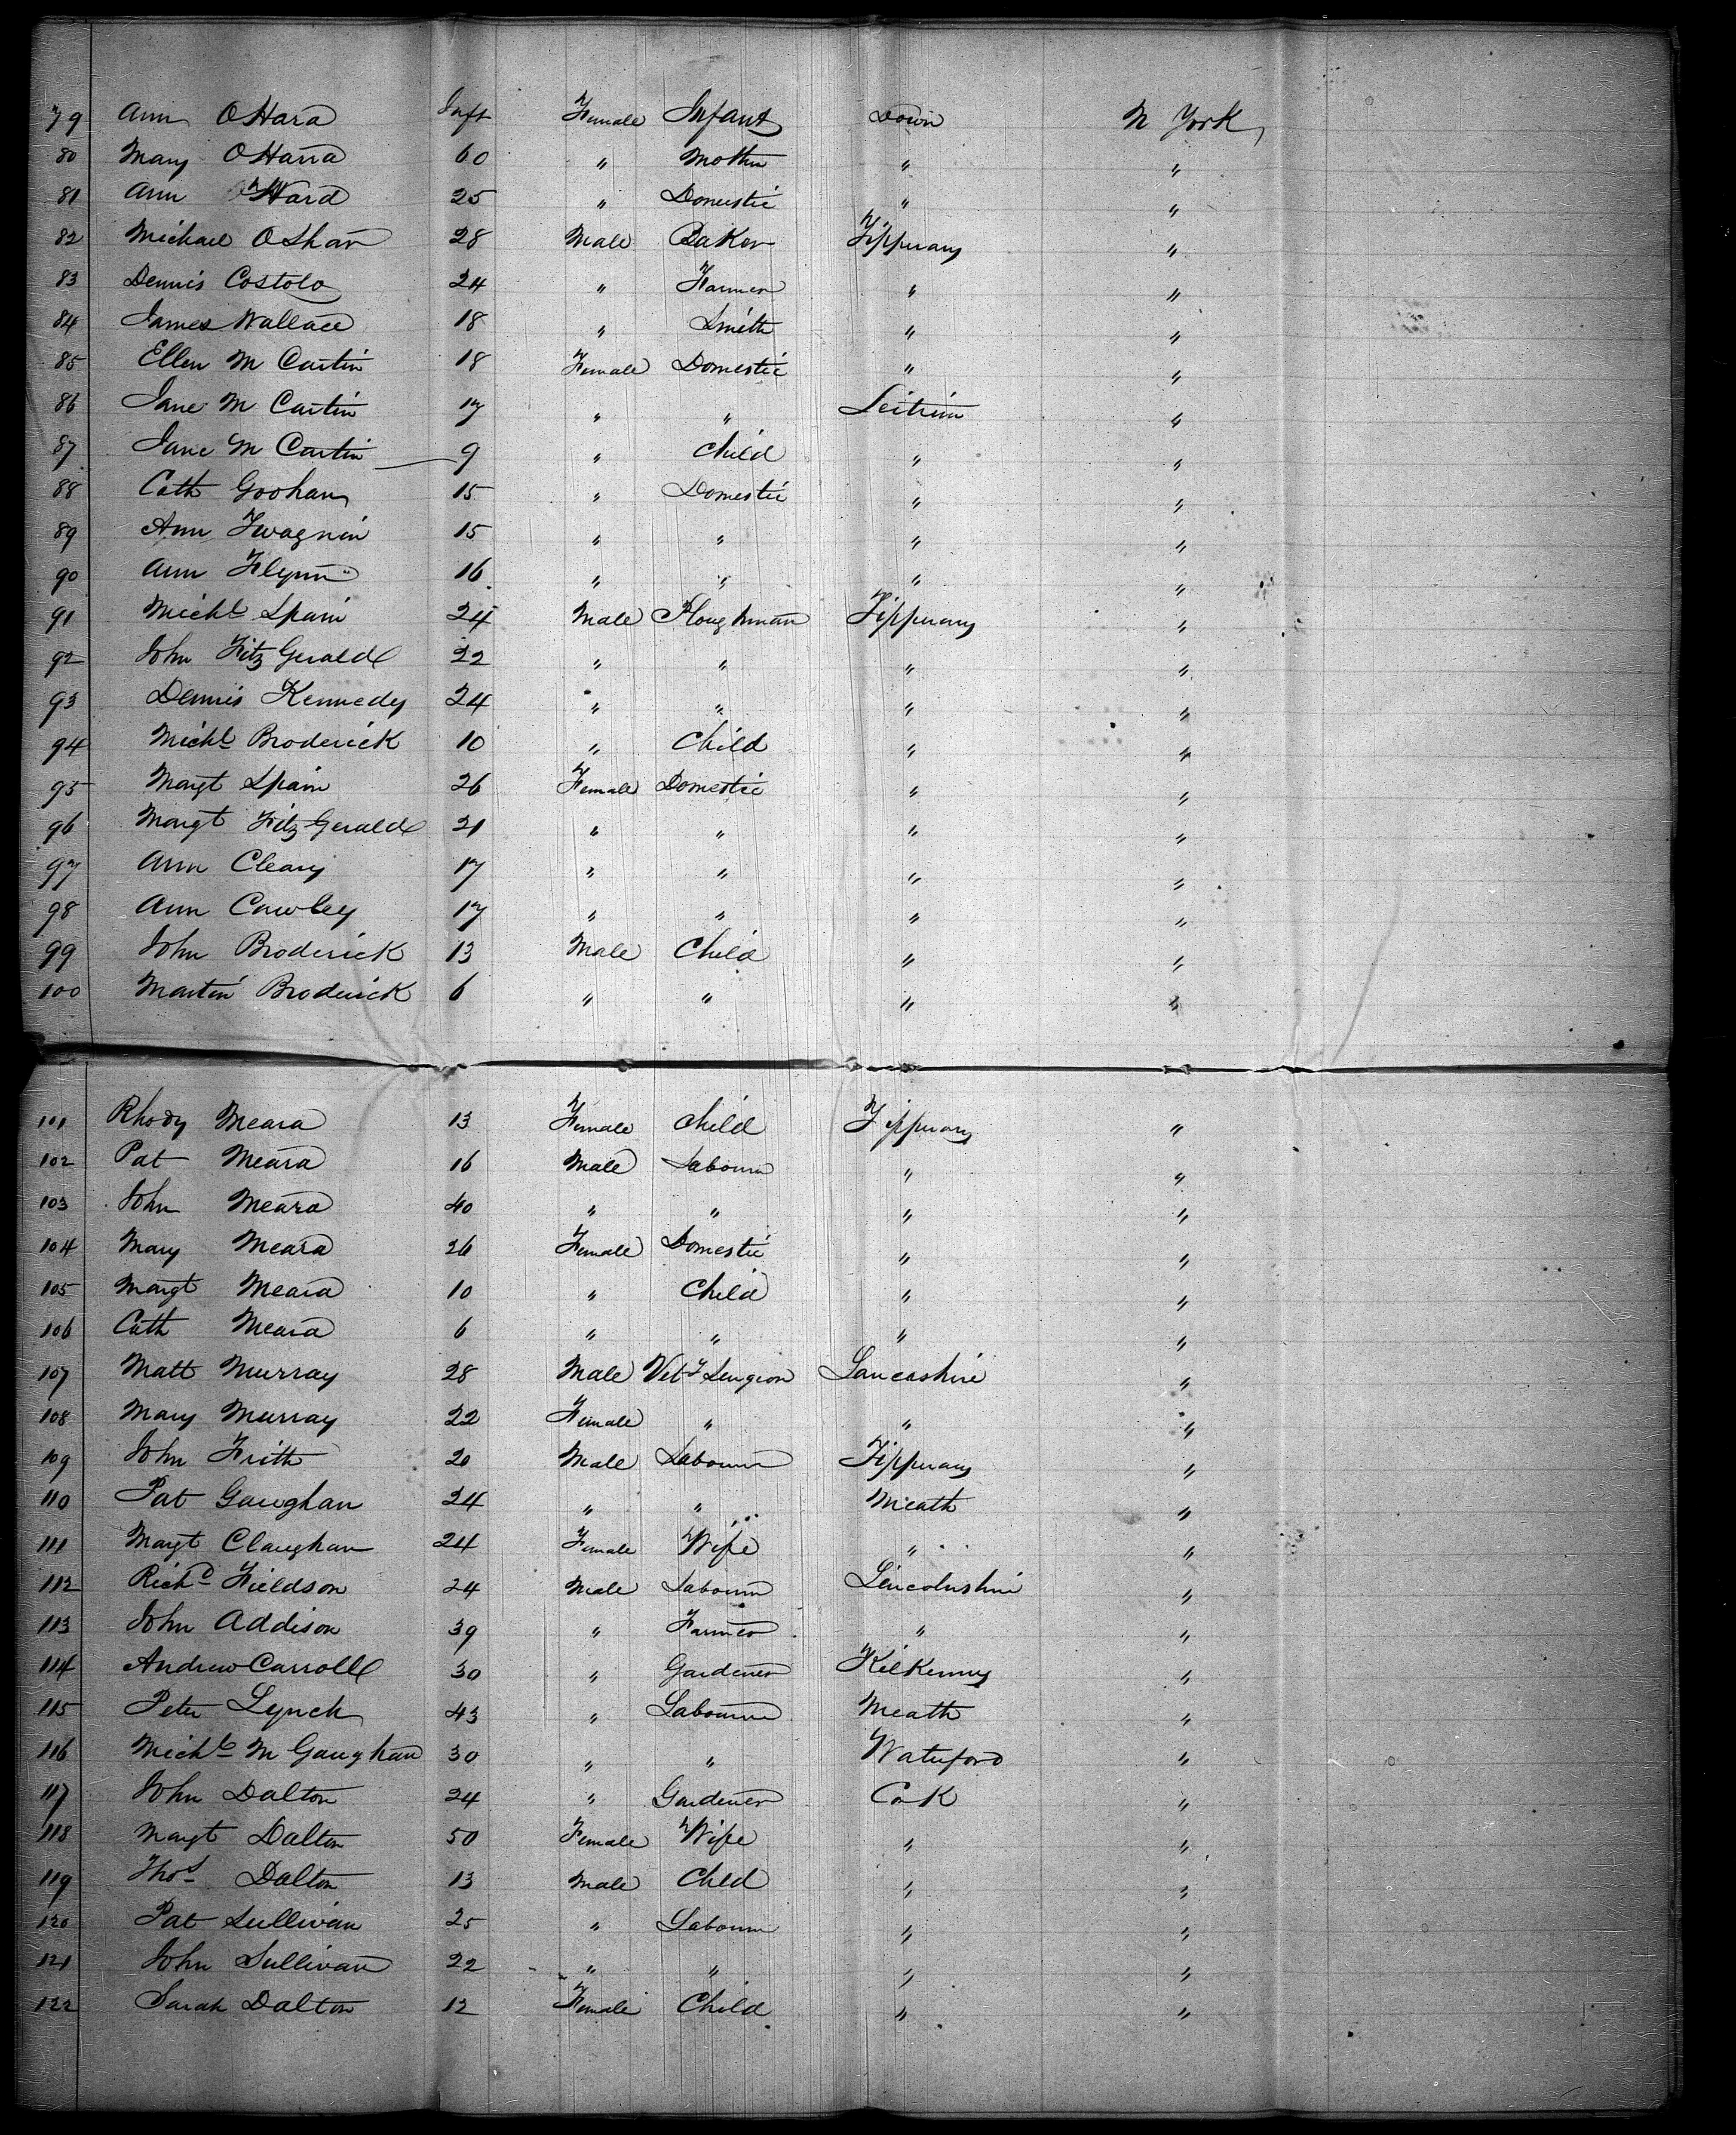 79 Ann OHara Inft Female Infant Down N York
80 Mary OHarra 60 " Mother " "
81 Ann OHara 25 " Domestic " "
82 Michael OShan 28 Male Baker Tipperary "
83 Dennis Costolo 24 " Farmer " "
84 James Wallace 18 " Smith " "
85 Ellen M Cartin 18 Female Domestic " "
86 Jane M Cartin 17 " " Leitrim "
87 Jane M Cartin 9 " Child " "
88 Cath Goohan 15 " Domestic " "
89 Ann 15 " " " "
90 Ann Flynn 16 " " " "
91 Michl Spain 24 Male Ploughman Tipperary "
92 John Fitz Gerald 22 " " " "
93 Dennis Kennedy 24 " " " "
94 Michl Broderick 10 " Child " "
95 Margt Spain 26 Female Domestic " "
96 Margt Fitz Gerald 21 " " " "
97 Ann Cleary 17 " " " "
98 Ann Cawley 17 " " " "
99 John Broderick 13 Male Child " "
100 Martin Broderick 6 " " " "
101 Rhody Meara 13 Female Child Tipperary "
102 Pat Meara 16 Male Labourer " "
103 John Meara 40 " " " "
104 Mary Meara 26 Female Domestic " "
105 Margt Meara 10 " Child " "
106 Cath Meara 6 " " " "
107 Matt Murray 28 Male Vety Surgeon Lancashire "
108 Mary Murray 22 Female " " "
109 John Frith 20 Male Labourer Tipperary "
110 Pat Gaughan 24 " " Meath "
111 Margt Claughan 24 Female Wife " "
112 Richd Fieldson 24 Male Labourer Lincolnshire "
113 John Addison 39 " Farmer " "
114 Andrew Carroll 30 " Gardener Kilkenny "
115 Peter Lynch 43 " Labourer Meath "
116 Michl M Gaughan 30 " " Waterford "
117 John Dalton 24 " Gardener Cork "
118 Margt Dalton 50 Female Wife " "
119 Thos Dalton 13 Male Child " "
120 Pat Sullivan 25 " Labourer " "
121 John Sullivan 22 " " " "
122 Sarah Dalton 12 Female Child " "